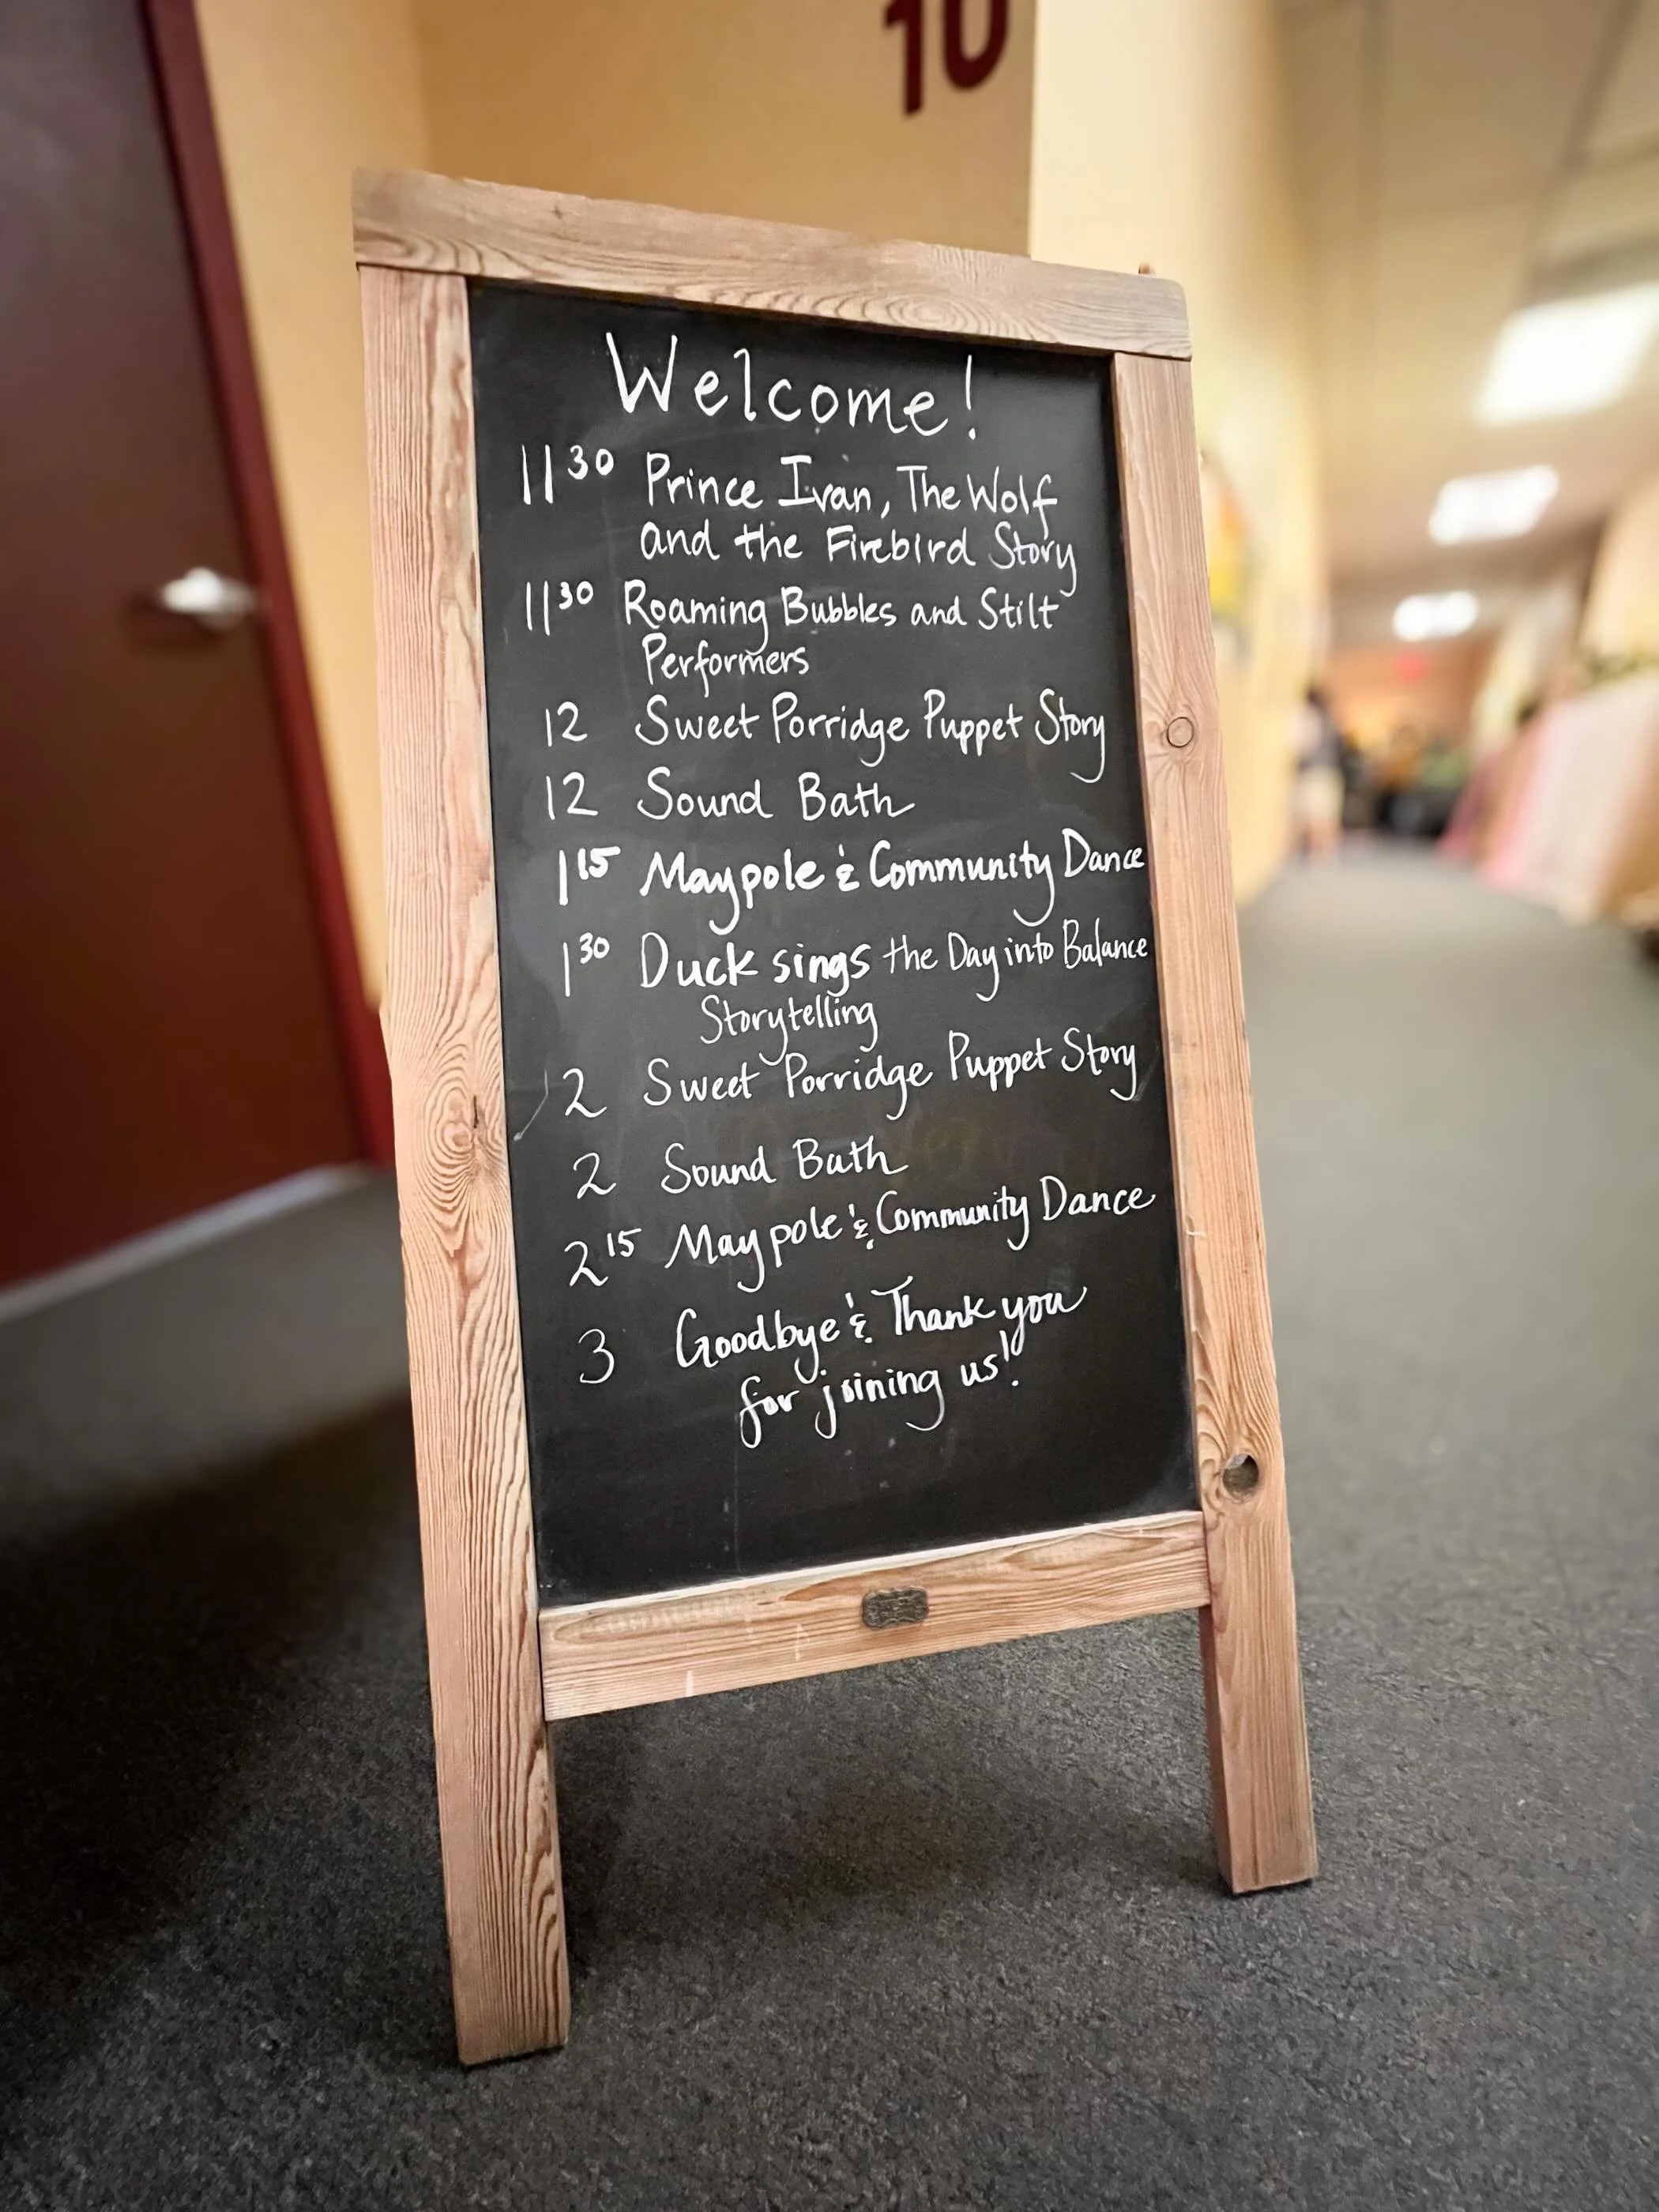 10
Welcome!
11³⁰ Prince Ivan, The Wolf
and the Firebird Story
11³⁰ Roaming Bubbles and Stilt
Performers
12 Sweet Porridge Puppet Story
12 Sound Bath
1¹⁵ Maypole & Community Dance
1³⁰ Duck sings the Day into Balance
Storytelling
2 Sweet Porridge Puppet Story
2 Sound Bath
2¹⁵ Maypole & Community Dance
3 Goodbye & Thank you
for joining us!